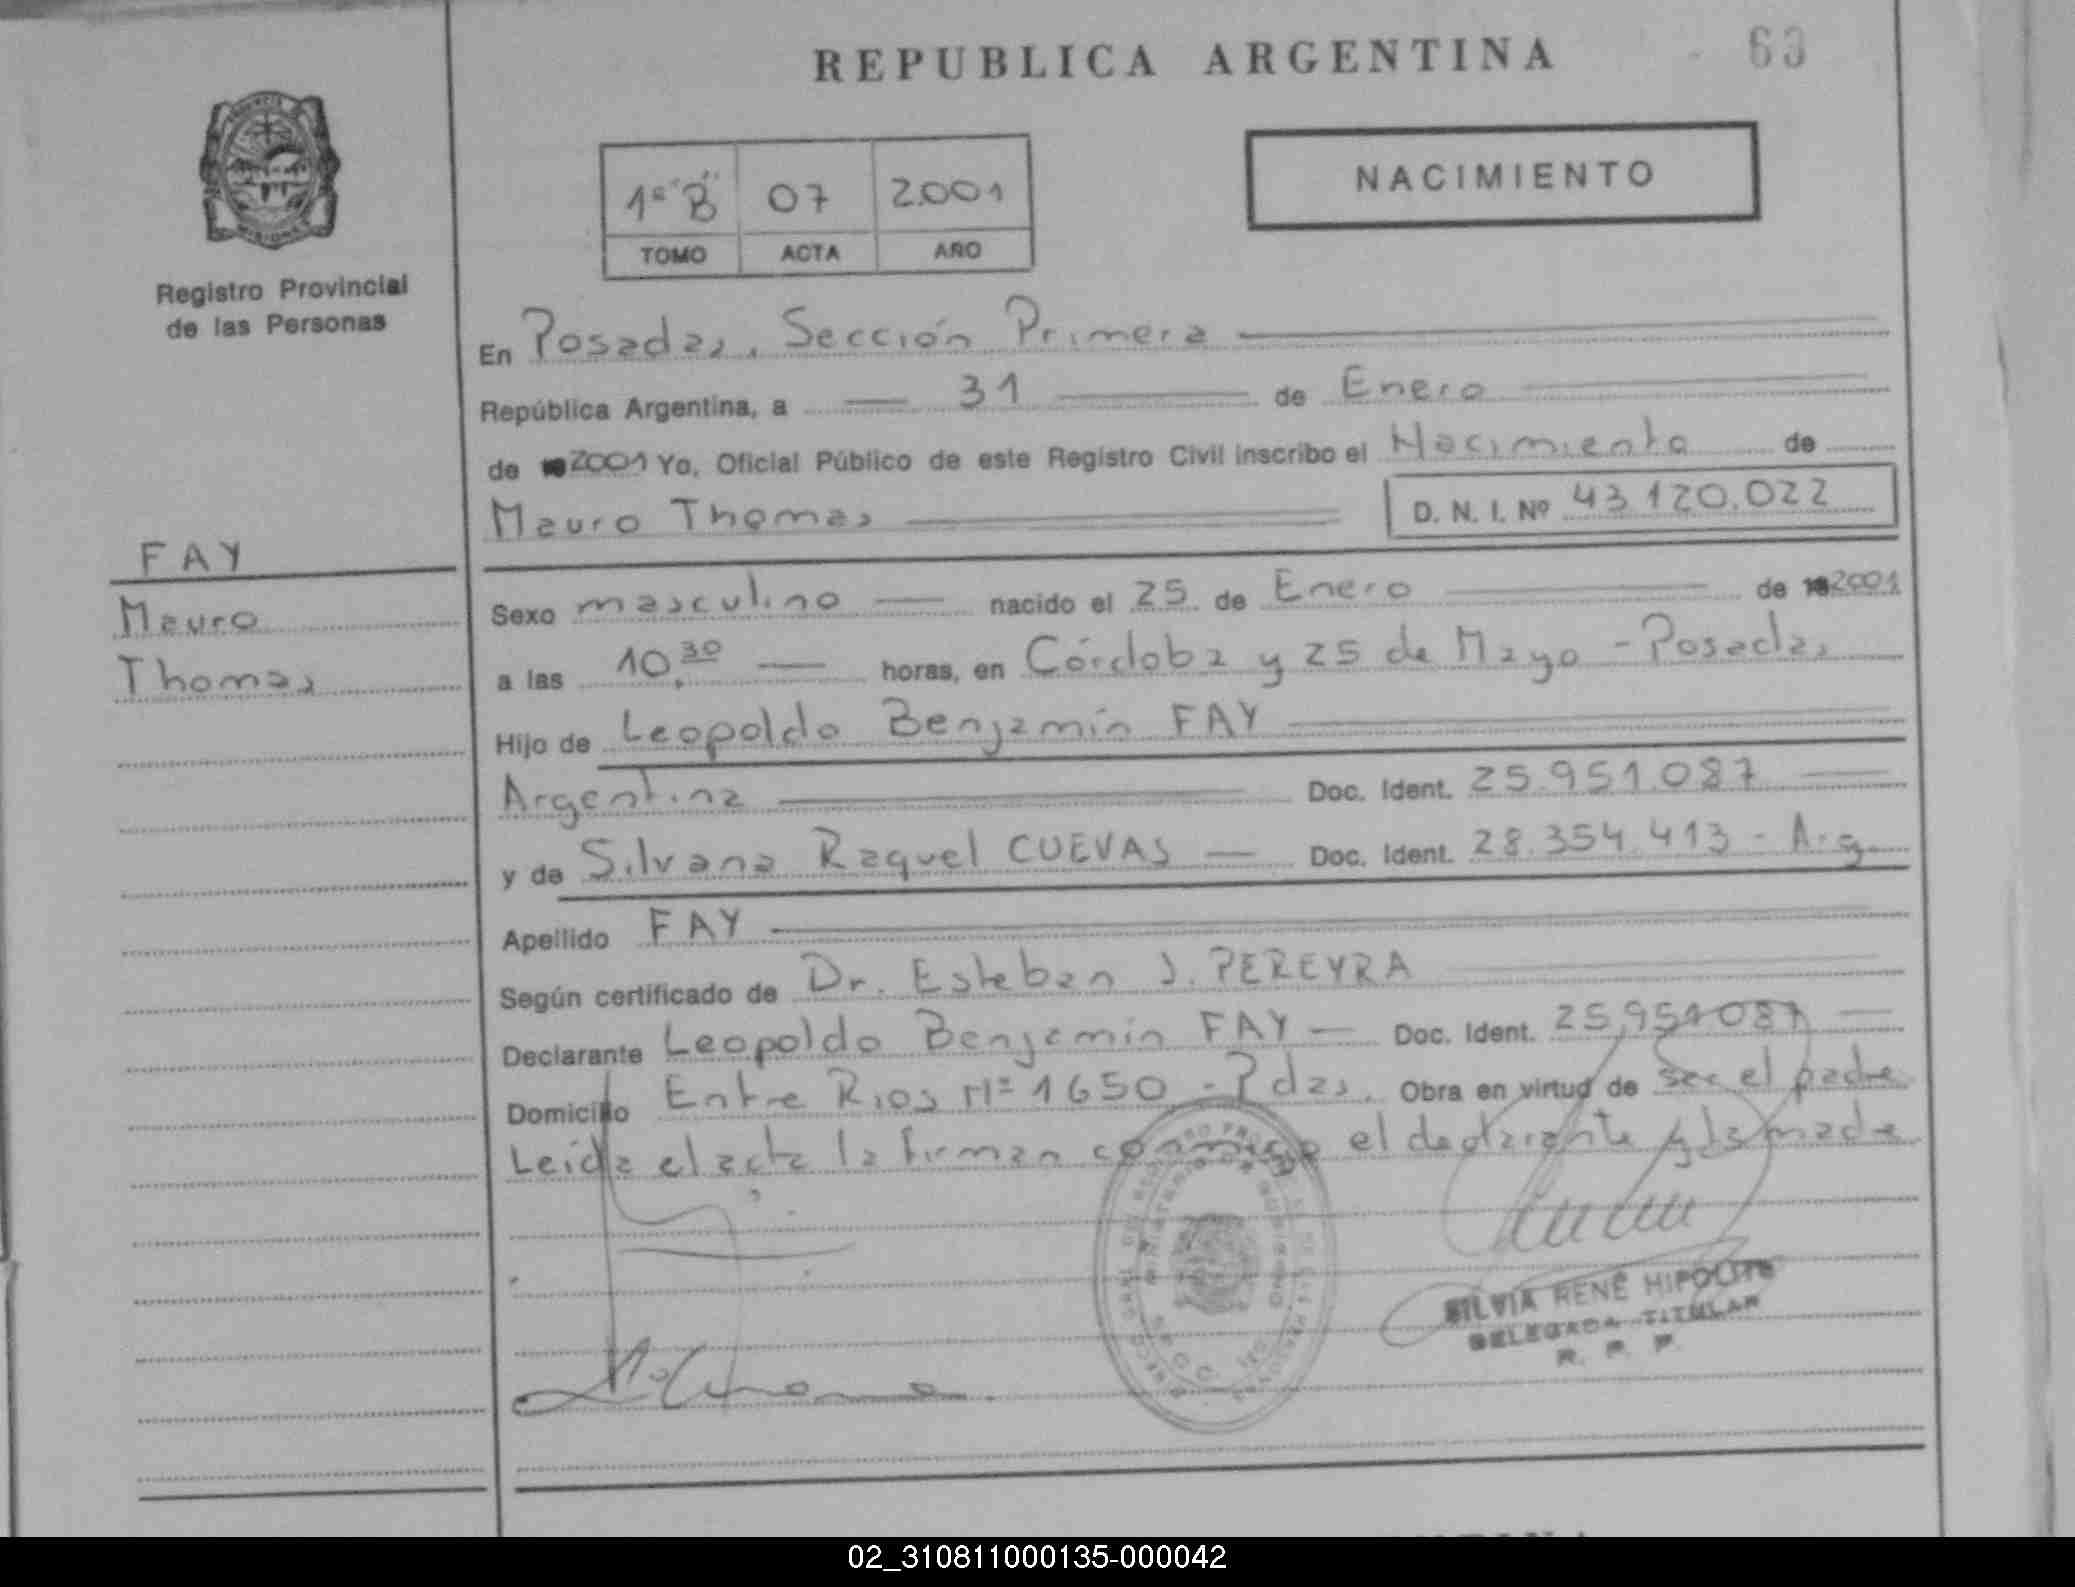 REPUBLICA ARGENTINA
63
NACIMIENTO
1º "B" 07 2.001
TOMO ACTA AÑO
Registro Provincial
de las Personas
En Posadas, Sección Primera
República Argentina, a 31 de Enero
de 2001 Yo, Oficial Público de este Registro Civil inscribo el Nacimiento de
Mauro Thomas D. N. I. Nº 43.120.022
FAY
Mauro
Thomas
Sexo masculino nacido el 25 de Enero de 2001
a las 10.30 horas, en Córdoba y 25 de Mayo - Posadas
Hijo de Leopoldo Benjamín FAY
Argentina Doc. Ident. 25.951.087
y de Silvana Raquel CUEVAS Doc. Ident. 28.354.413 - Arg.
Apellido FAY
Según certificado de Dr. Esteban J. PEREYRA
Declarante Leopoldo Benjamín FAY Doc. Ident. 25.951.087
Domicilio Entre Rios Nº 1650 - Pdas. Obra en virtud de ser el padre
Leída el acta la firman conmigo el declarante y la madre
SILVIA RENÉ HIPOLITO
DELEGADA TITULAR
R. P. P.
02_310811000135-000042